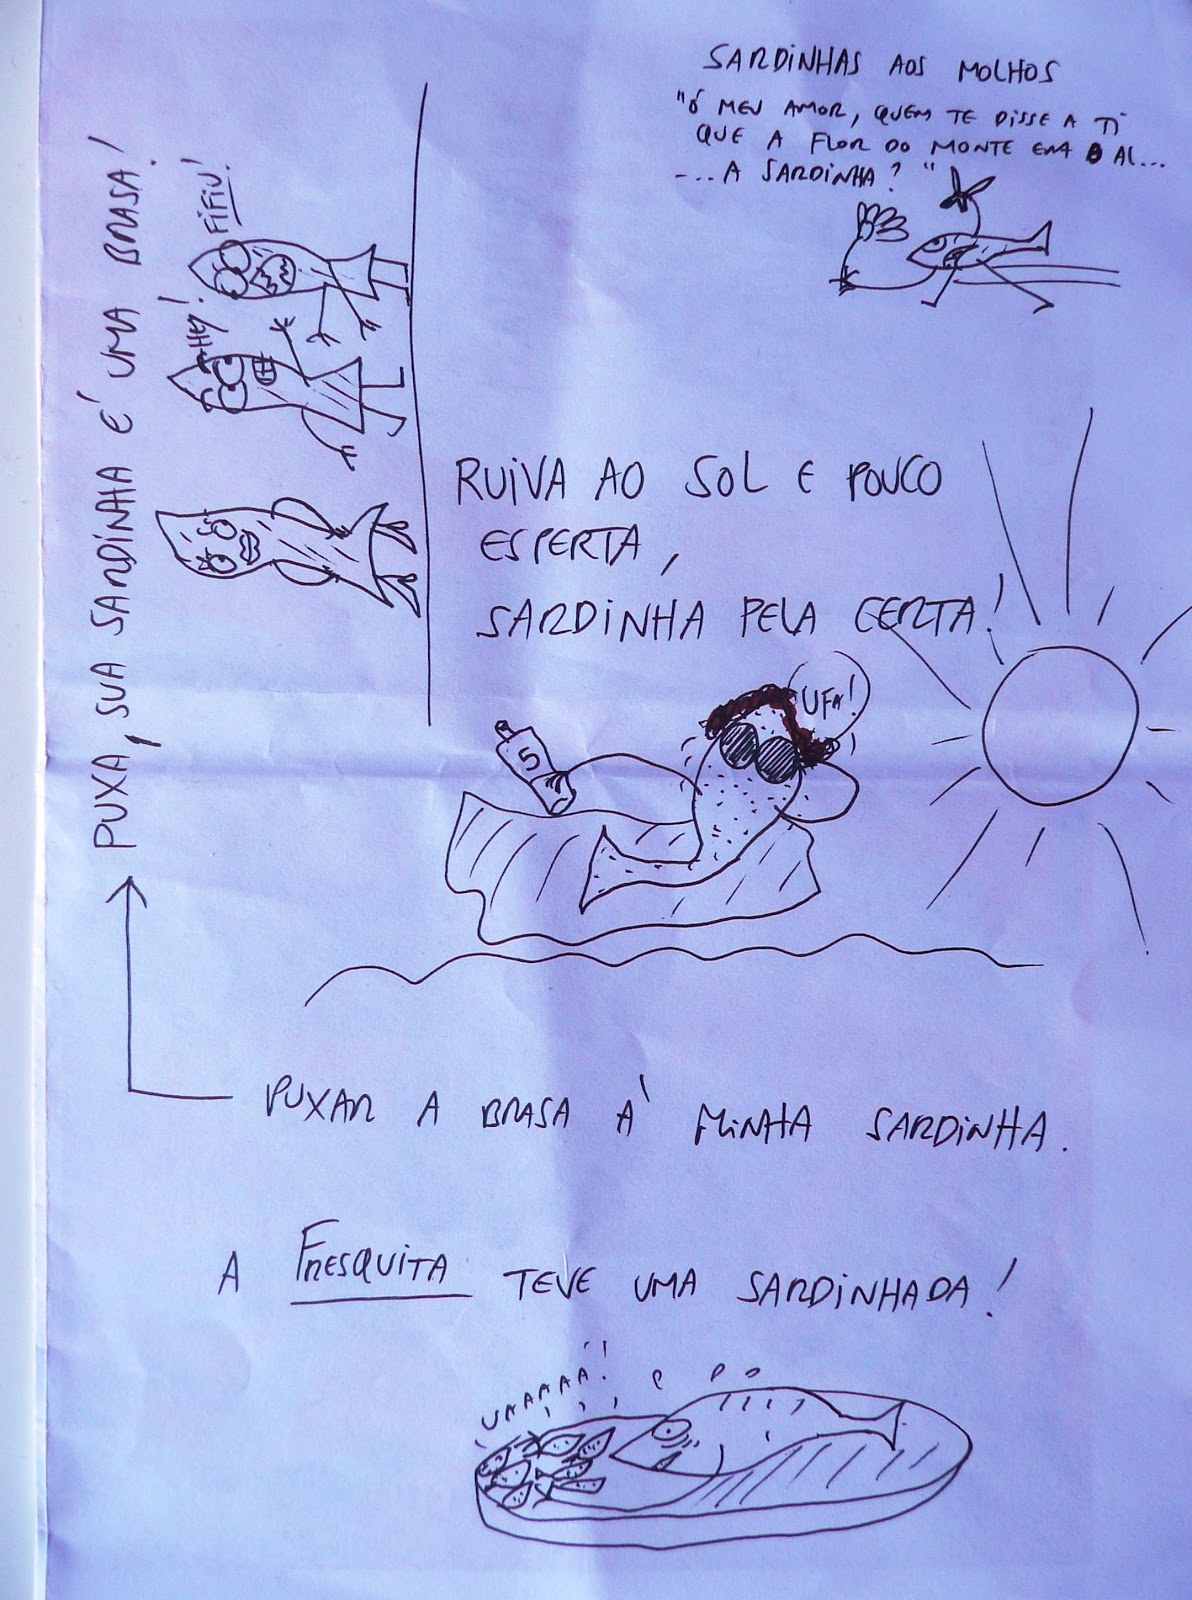 SARDINHAS AOS MOLHOS
"Ó MEU AMOR, QUEM TE DISSE A TI
QUE A FLOR DO MONTE ERA O AL...
-...A SARDINHA?"
PUXA, SUA SARDINHA É UMA BRASA!
FIFIU!
HEY!
RUIVA AO SOL E POUCO
ESPERTA,
SARDINHA PELA CERTA!
UFA!
5
PUXAR A BRASA À MINHA SARDINHA.
A FRESQUITA TEVE UMA SARDINHADA!
UAAAAA!